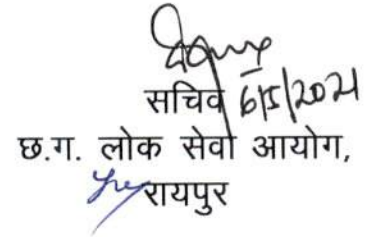 सचिव 6/5/2021
छ.ग. लोक सेवा आयोग,
रायपुर